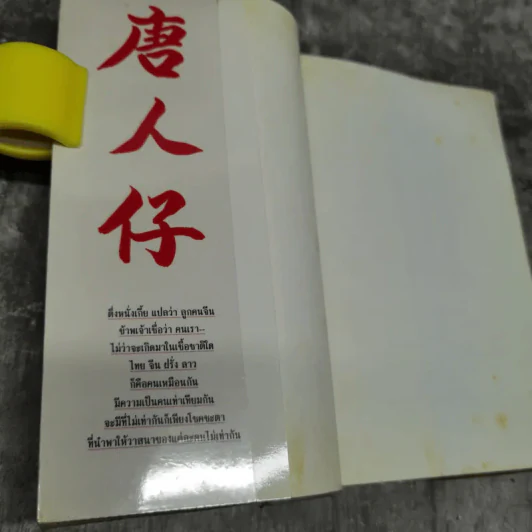 唐
人
仔
ตึ่งหนั่งเกี้ย แปลว่า ลูกคนจีน
ข้าพเจ้าเชื่อว่า คนเรา--
ไม่ว่าจะเกิดมาในเชื้อชาติใด
ไทย จีน ฝรั่ง ลาว
ก็คือคนเหมือนกัน
มีความเป็นคนเท่าเทียมกัน
จะมีที่ไม่เท่ากันก็เพียงโชคชะตา
ที่นำพาให้วาสนาของแต่ละคนไม่เท่ากัน